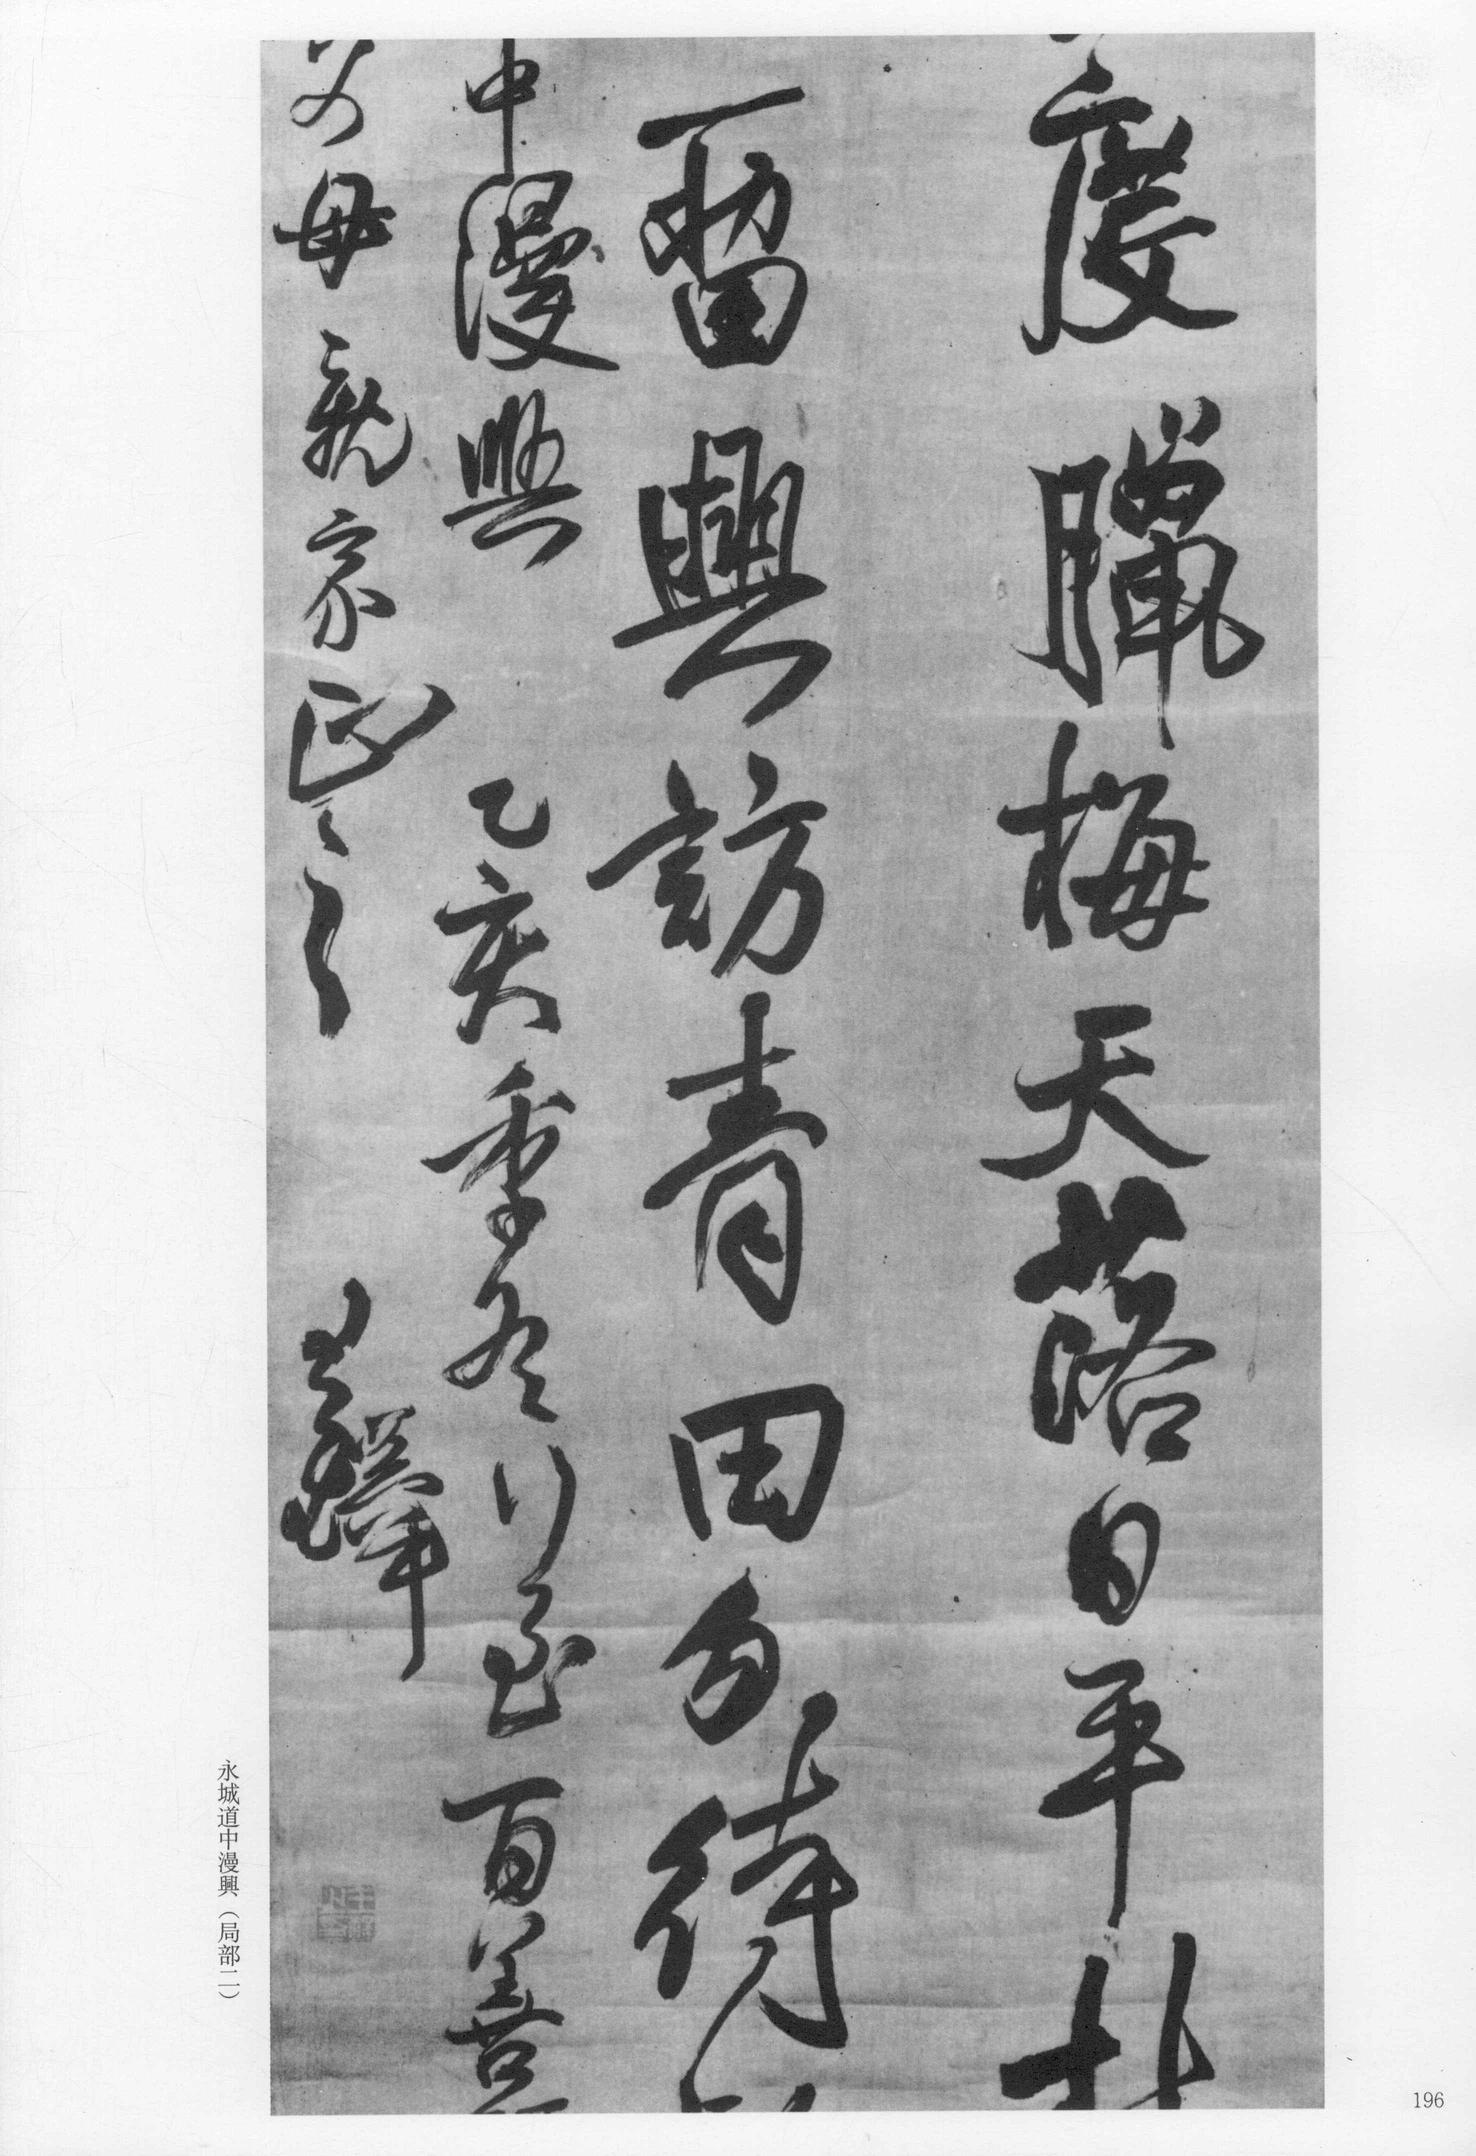 度臘梅天落日平林
留興訪青田勿待
中漫興 乙亥季冬行至百善
父母親家正之 王鐸
永城道中漫興（局部二）
196